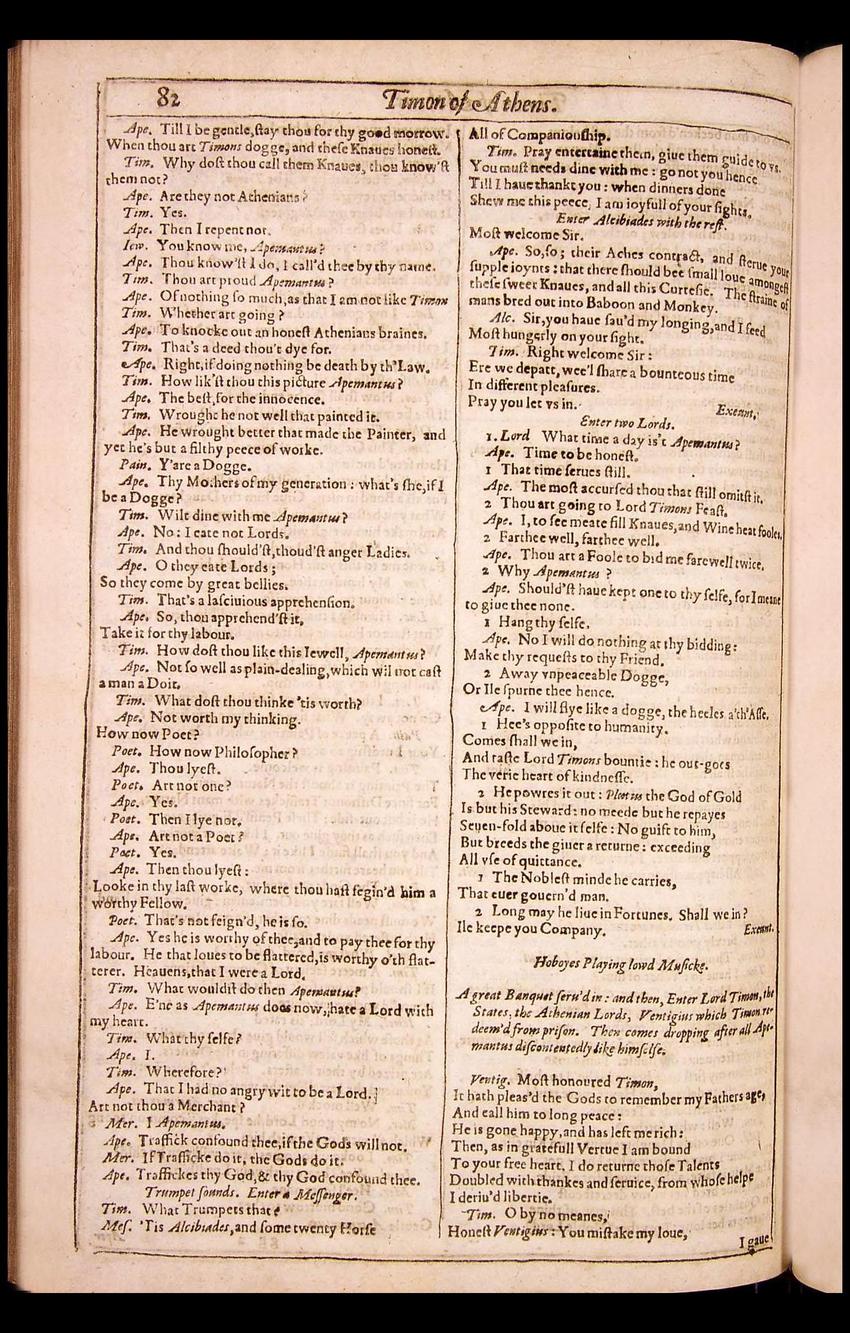 82
Timon of Athens.
Ape. Till I be gentle, ſtay thou for thy good morrow.
When thou art Timons dogge, and theſe Knaues honeſt.
Tim. Why doſt thou call them Knaues, thou know'ſt
them not?
Ape. Are they not Athenians?
Tim. Yes.
Ape. Then I repent not.
Iew. You know me, Apemantus?
Ape. Thou know'ſt I do, I call'd thee by thy name.
Tim. Thou art proud Apemantus?
Ape. Of nothing ſo much, as that I am not like Timon
Tim. Whether art going?
Ape. To knocke out an honeſt Athenians braines.
Tim. That's a deed thou't dye for.
Ape. Right, if doing nothing be death by th'Law.
Tim. How lik'ſt thou this picture Apemantus?
Ape. The beſt, for the innocence.
Tim. Wrought he not well that painted it.
Ape. He wrought better that made the Painter, and
yet he's but a filthy peece of worke.
Pain. Y'are a Dogge.
Ape. Thy Mothers of my generation: what's ſhe, if I
be a Dogge?
Tim. Wilt dine with me Apemantus?
Ape. No: I eate not Lords.
Tim. And thou ſhould'ſt, thoud'ſt anger Ladies.
Ape. O they eate Lords;
So they come by great bellies.
Tim. That's a laſciuious apprehenſion.
Ape. So, thou apprehend'ſt it,
Take it for thy labour.
Tim. How doſt thou like this Iewell, Apemantus?
Ape. Not ſo well as plain-dealing, which wil not caſt
a man a Doit.
Tim. What doſt thou thinke 'tis worth?
Ape. Not worth my thinking.
How now Poet?
Poet. How now Philoſopher?
Ape. Thou lyeſt.
Poet. Art not one?
Ape. Yes.
Poet. Then I lye not.
Ape. Art not a Poet?
Poet. Yes.
Ape. Then thou lyeſt:
Looke in thy laſt worke, where thou haſt fegin'd him a
worthy Fellow.
Poet. That's not feign'd, he is ſo.
Ape. Yes he is worthy of thee, and to pay thee for thy
labour. He that loues to be flattered, is worthy o'th flat-
terer. Heauens, that I were a Lord.
Tim. What wouldſt do then Apemantus?
Ape. E'ne as Apemantus does now, hate a Lord with
my heart.
Tim. What thy ſelfe?
Ape. I.
Tim. Wherefore?
Ape. That I had no angry wit to be a Lord.
Art not thou a Merchant?
Mer. I Apemantus.
Ape. Traffick confound thee, if the Gods will not.
Mer. If Trafficke do it, the Gods do it.
Ape. Traffickes thy God, & thy God confound thee.
Trumpet ſounds. Enter a Meſſenger.
Tim. What Trumpets that?
Meſ. 'Tis Alcibiades, and ſome twenty Horſe
All of Companionſhip.
Tim. Pray entertaine them, giue them guide to vs.
You muſt needs dine with me: go not you hence
Till I haue thankt you: when dinners done
Shew me this peece, I am ioyfull of your ſights.
Enter Alcibiades with the reſt.
Moſt welcome Sir.
Ape. So, ſo; their Aches contract, and ſterue your
ſupple ioynts: that there ſhould bee ſmall loue amongeſt
theſe ſweet Knaues, and all this Curteſie. The ſtraine of
mans bred out into Baboon and Monkey.
Alc. Sir, you haue ſau'd my longing, and I feed
Moſt hungerly on your ſight.
Tim. Right welcome Sir:
Ere we depatt, wee'l ſhare a bounteous time
In different pleaſures.
Pray you let vs in.
Exeunt.
Enter two Lords.
1. Lord What time a day is't Apemantus?
Ape. Time to be honeſt.
1 That time ſerues ſtill.
Ape. The moſt accurſed thou that ſtill omitſt it.
2 Thou art going to Lord Timons Feaſt.
Ape. I, to ſee meate fill Knaues, and Wine heat fooles.
2 Farthee well, farthee well.
Ape. Thou art a Foole to bid me farewell twice.
2 Why Apemantus?
Ape. Should'ſt haue kept one to thy ſelfe, for I meane
to giue thee none.
1 Hang thy ſelfe.
Ape. No I will do nothing at thy bidding:
Make thy requeſts to thy Friend.
2 Away vnpeaceable Dogge,
Or Ile ſpurne thee hence.
Ape. I will flye like a dogge, the heeles a'th'Aſſe.
1 Hee's oppoſite to humanity.
Comes ſhall we in,
And raſte Lord Timons bountie: he out-goes
The verie heart of kindneſſe.
2 He powres it out: Plutus the God of Gold
Is but his Steward: no meede but he repayes
Seuen-fold aboue it ſelfe: No guift to him,
But breeds the giuer a returne: exceeding
All vſe of quittance.
1 The Nobleſt minde he carries,
That euer gouern'd man.
2 Long may he liue in Fortunes. Shall we in?
Ile keepe you Company.
Exeunt.
Hoboyes Playing lowd Muſicke.
A great Banquet ſeru'd in: and then, Enter Lord Timon, the
States, the Athenian Lords, Ventigius which Timon re-
deem'd from priſon. Then comes dropping after all Ape-
mantus diſcontentedly like himſelfe.
Ventig. Moſt honoured Timon,
It hath pleas'd the Gods to remember my Fathers age,
And call him to long peace:
He is gone happy, and has left me rich:
Then, as in gratefull Vertue I am bound
To your free heart, I do returne thoſe Talents
Doubled with thankes and ſeruice, from whoſe helpe
I deriu'd libertie.
Tim. O by no meanes,
Honeſt Ventigius: You miſtake my loue,
I gaue